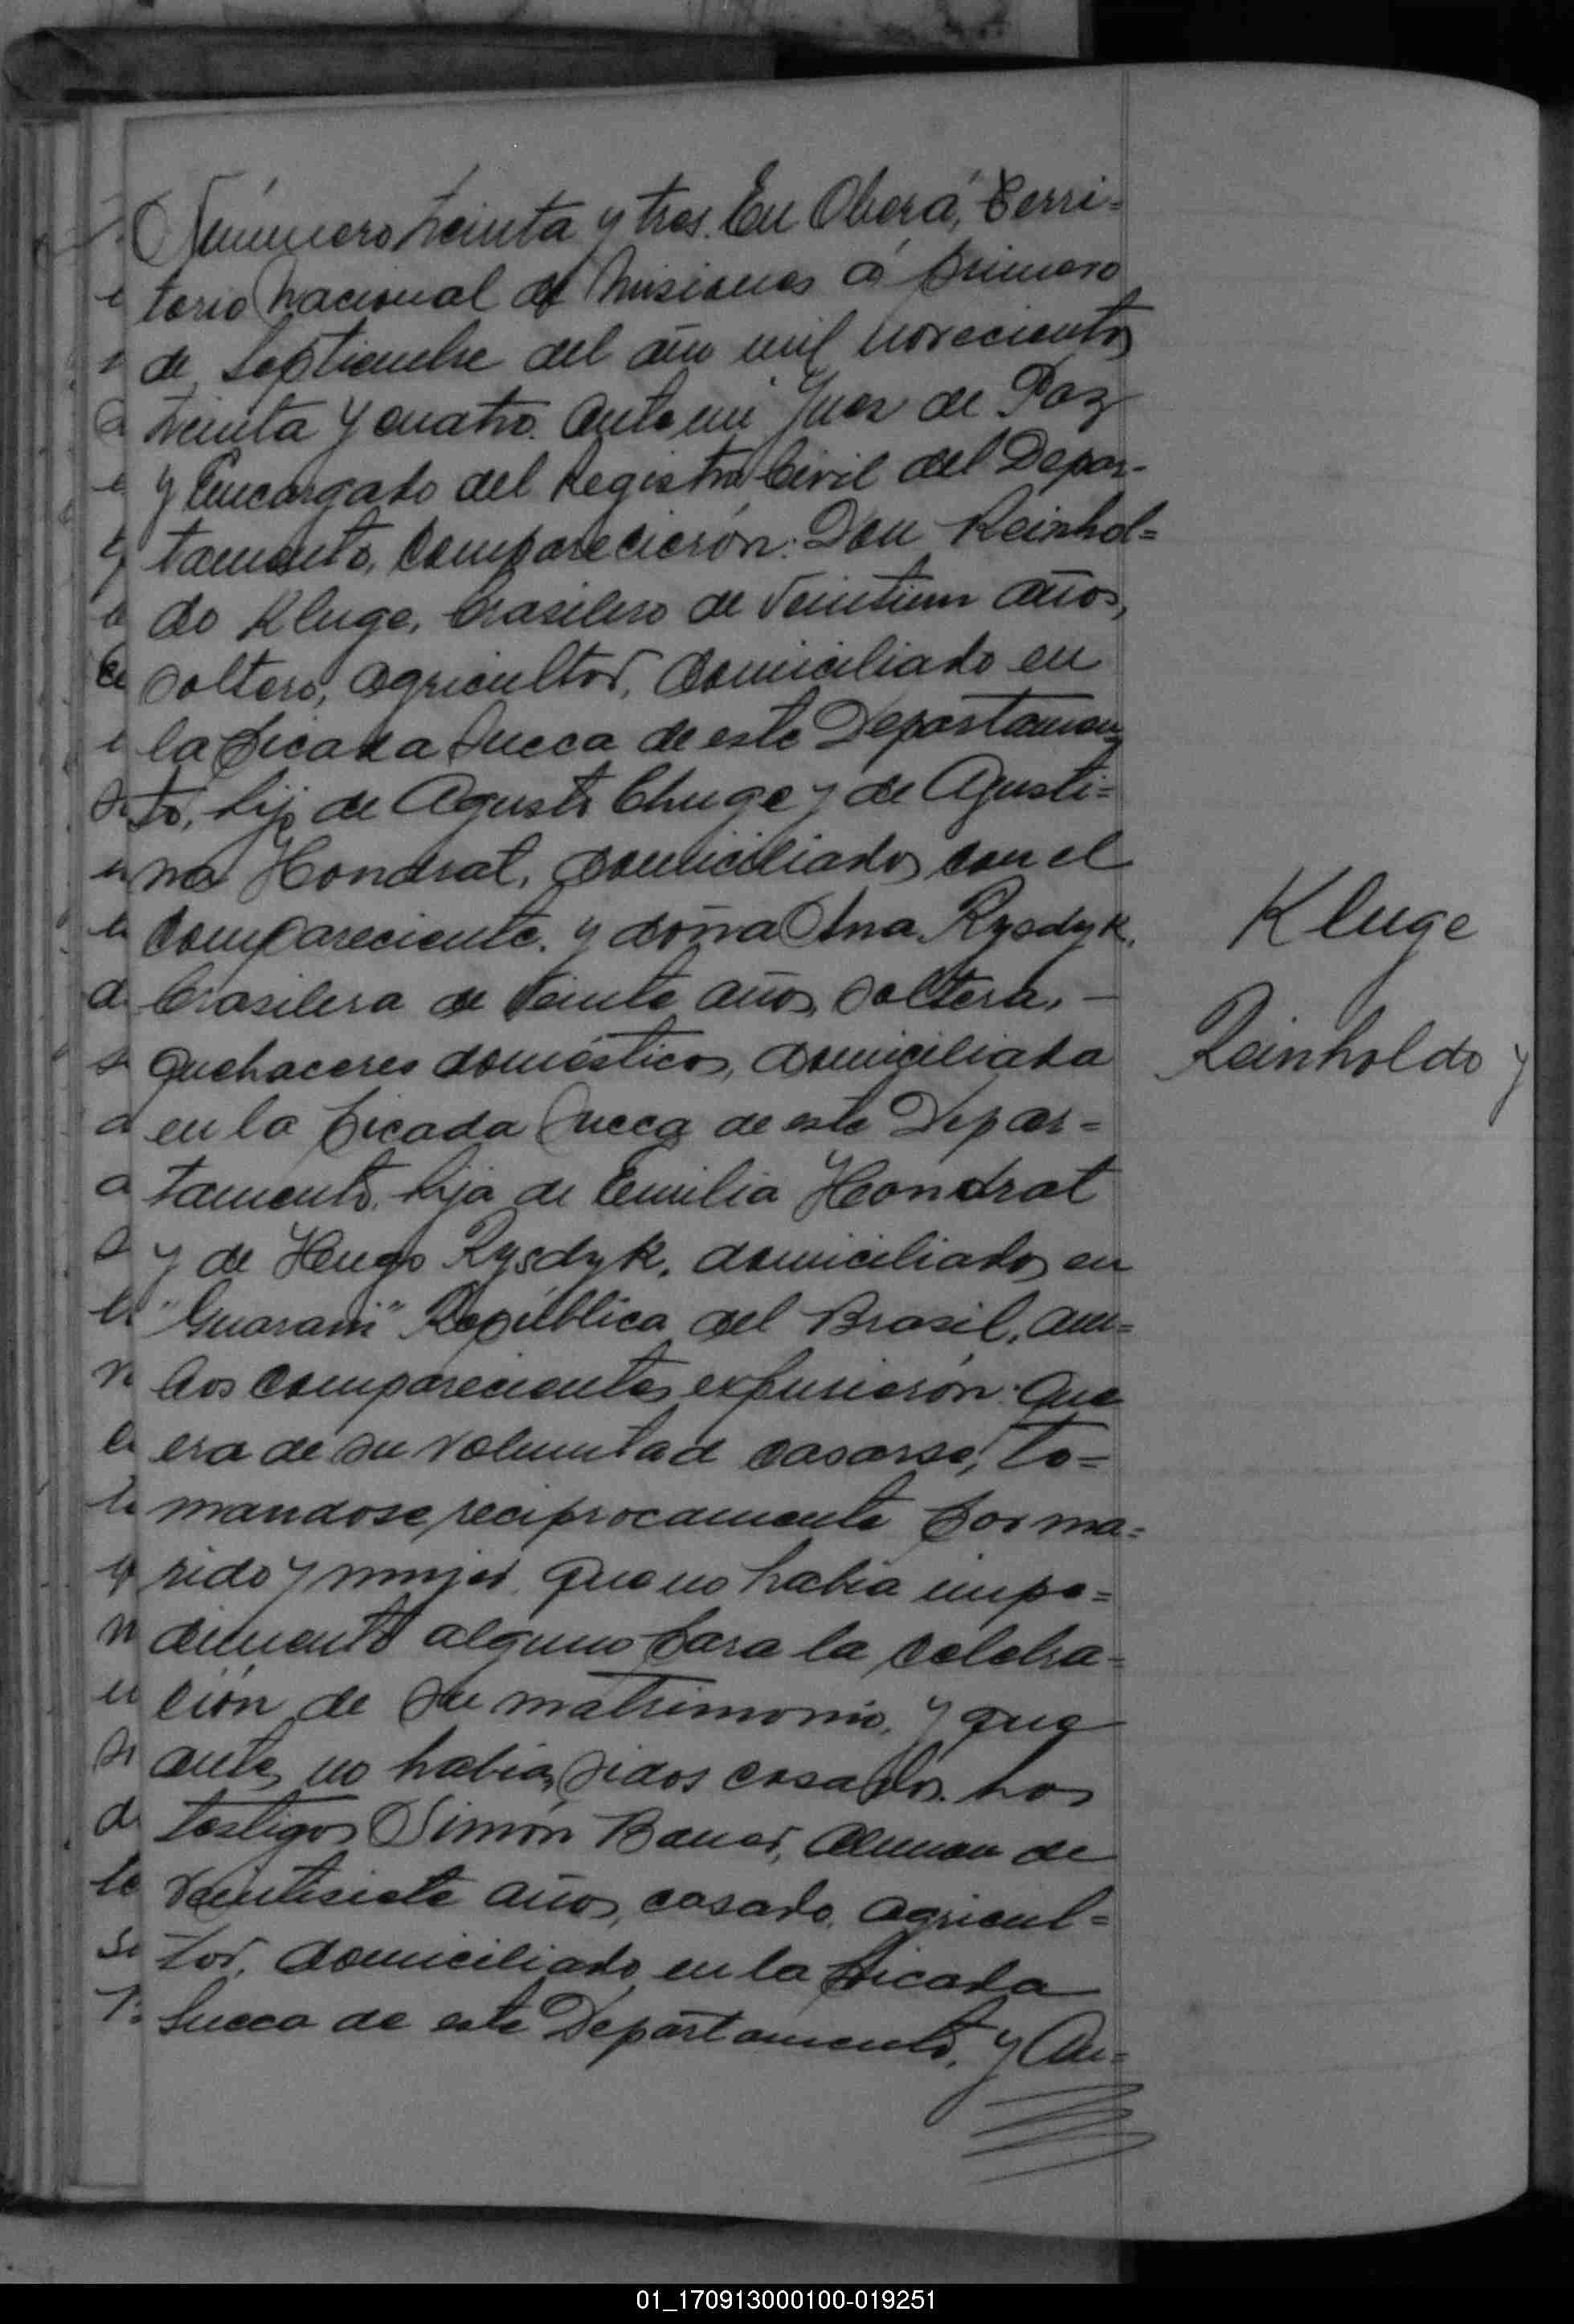 Número treinta y tres. En Oberá, Terri=
torio Nacional de Misiones á primero
de Septiembre del año mil novecientos
treinta y cuatro. Ante mi Juez de Paz
y Encargado del Registro Civil del Depar-
tamento, Comparecierón: Don Reinhol=
do Kluge, brasilero de Veintiun años,
soltero, agricultor, domiciliado en
la Picada Sueca de este Departamen=
to, hijo de Agusto Chuge y de Agusti=
na Hondrat, domiciliados con el
compareciente, y doña Ana Rysdyk,
brasilera de Veinte años, soltera, —
quehaceres domésticos, domiciliada
en la Picada Sueca de este Depar=
tamento, hija de Emilia Hondrat
y de Hugo Rysdyk, domiciliados en
"Guarani" República del Brasil, am=
bos comparecientes expusierón: Que
era de su voluntad casarse, to=
mandose reciprocamente por ma=
rido y mujer, que no habia impe=
dimento alguno para la celebra=
ción de su matrimonio, y que
antes no habian sidos casados. Los
testigos Simón Bauer, Aleman de
Veintisiete años, casado, agricul=
tor, domiciliado en la Picada
Sueca de este Departamento, y Au=
Kluge
Reinholdo y
01_170913000100-019251